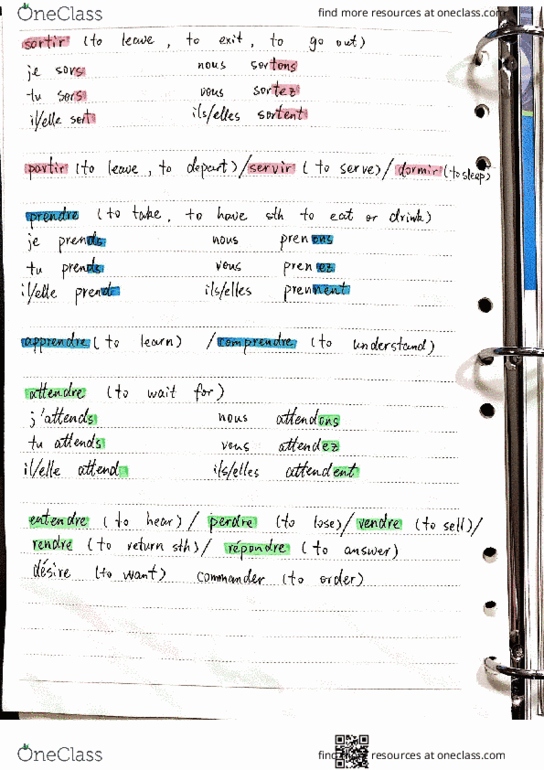 OneClass
find more resources at oneclass.com
sortir (to leave, to exit, to go out)
je sors nous sortons
tu sors vous sortez
il/elle sort ils/elles sortent
partir (to leave, to depart)/servir (to serve)/dormir (to sleep)
prendre (to take, to have sth to eat or drink)
je prends nous prenons
tu prends vous prenez
il/elle prend ils/elles prennent
apprendre (to learn) /comprendre (to understand)
attendre (to wait for)
j'attends nous attendons
tu attends vous attendez
il/elle attend ils/elles attendent
entendre (to hear) / perdre (to lose)/ vendre (to sell)/
rendre (to return sth)/ répondre (to answer)
désire (to want) commander (to order)
OneClass
find more resources at oneclass.com